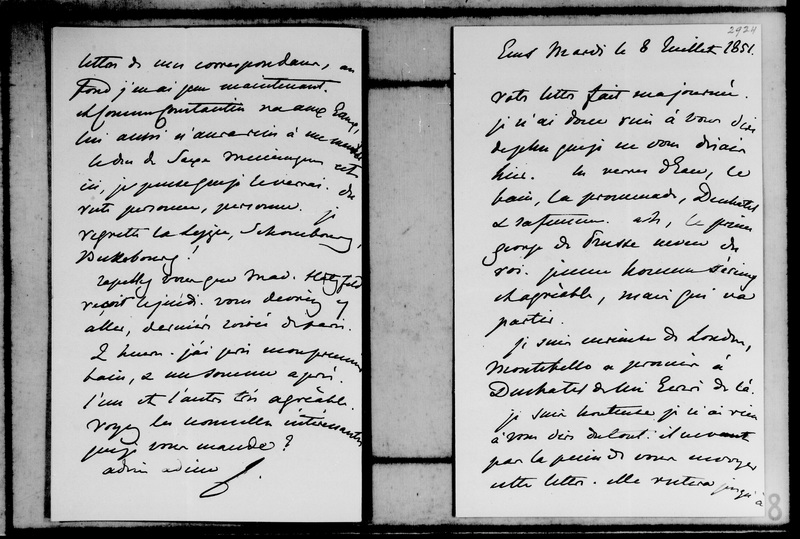 2924
Ems Mardi le 8 Juillet 1851.
votre lettre fait ma journée.
je n'ai donc rien à vous dire
de plus que je ne vous disais
hier. les verres d'Eau, le
bain, la promenade, Duchatel
& sa femme. ah, le prince
george de Prusse neveu du
roi. jeune homme sérieux
& agréable, mais qui va
partir.
je suis curieuse de Londres,
Montebello a promis à
Duchatel de lui Ecrire de là.
je suis honteuse je n'ai rien
à vous dire du tout. il ne vaut
pas la peine de vous envoyer
cette lettre. elle restera jusqu'à
8
lettres de mes correspondans, au
fond j'en ai peu maintenant.
& comme Constantin va aux Eaux,
lui aussi n'aura rien à me mander
le duc de Saxe Meiningen est
ici, je pense que je le verrai. du
reste personne, personne. je
regrette la Seggee, Schoenbourg,
Buckebourg!
rappellez vous que Mad. Hatzfeld
reçoit le jeudi. vous devriez y
aller, dernière soirée de Paris.
2 heures. j'ai pris mon premier
bain, & un somme après.
l'un et l'autre très agréable.
voyez les nouvelles intéressantes
que je vous mande?
adieu adieu